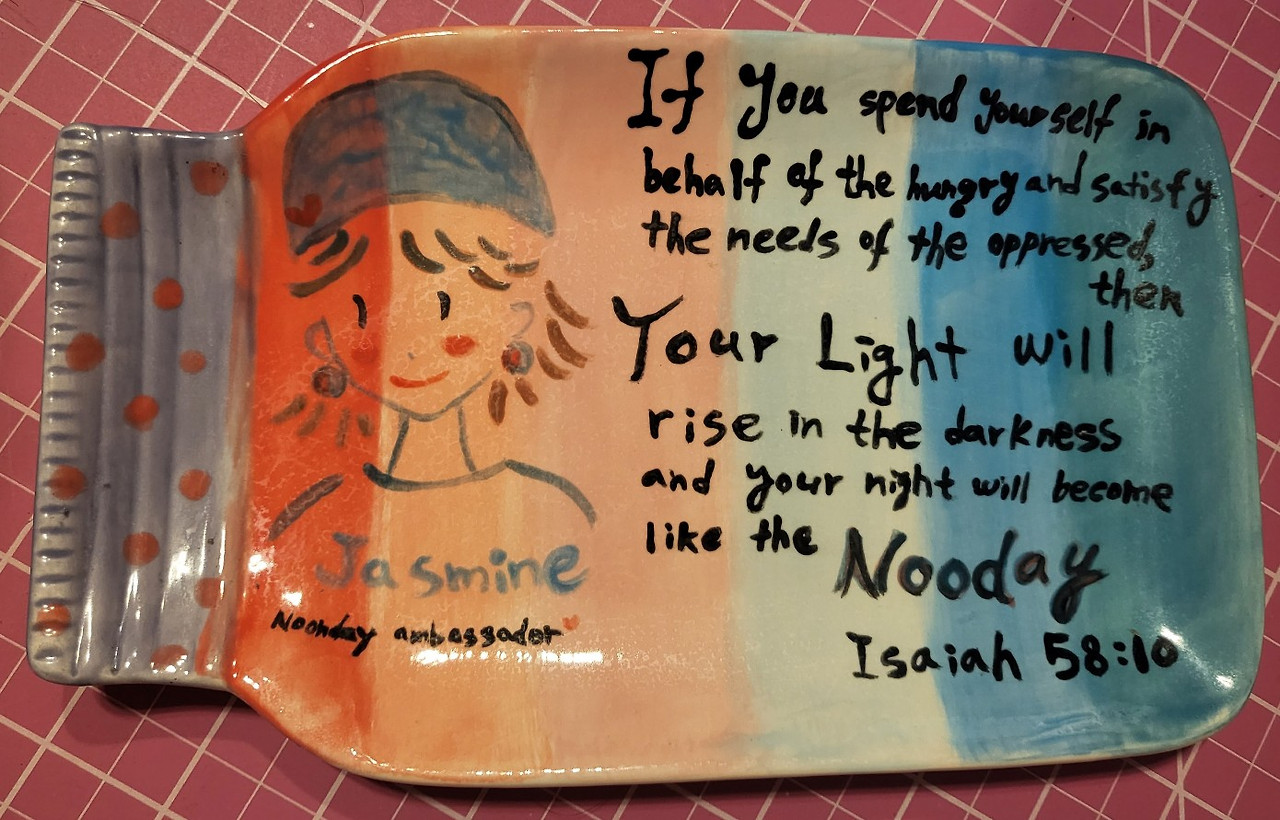 If you spend yourself in
behalf of the hungry and satisfy
the needs of the oppressed,
then
Your Light will
rise in the darkness
and your night will become
like the Nooday
Isaiah 58:10
Jasmine
Noonday ambassador